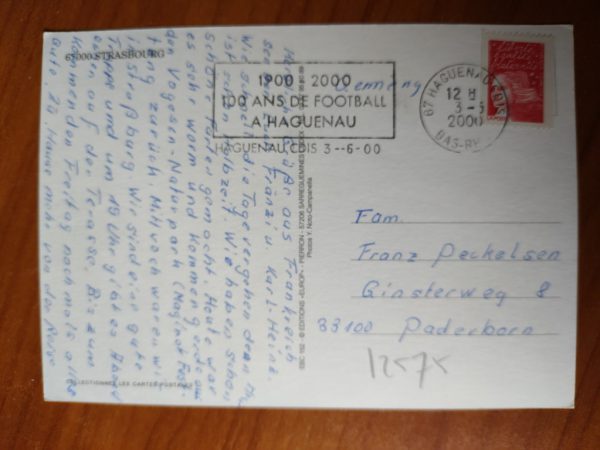 67000 STRASBOURG
1900 2000
100 ANS DE FOOTBALL
A HAGUENAU
HAGUENAU CDIS 3--6-00
67 HAGUENAU CDIS
12 H
3-6
2000
BAS-RHIN
Germany
Fam.
Franz Peckelsen
Ginsterweg 8
33100 Paderborn
12575
Herzliche Grüße aus Frankreich
senden Fränzi u. Karl-Heinz.
Wie schnell die Tage vergehen denn
ist schon Halbzeit. Wir haben schon
schöne gemacht. Heute war
es sehr warm und kommen gerade aus
den Vogesen-Naturpark (Maginot Fes-
tung zurück. Mittwoch waren wir
in Straßburg. Wir sind eine gute
Truppe und um 19 Uhr gibt es Abend
essen auf der Terasse. Bis zum
kommenden Freitag nochmals alles
Gute. Zu Hause mehr von der Reise
© EDITIONS «EUROP» PIERRON - 57206 SARREGUEMINES CEDEX
Photos Y. Noto-Campanella
COLLECTIONNEZ LES CARTES POSTALES